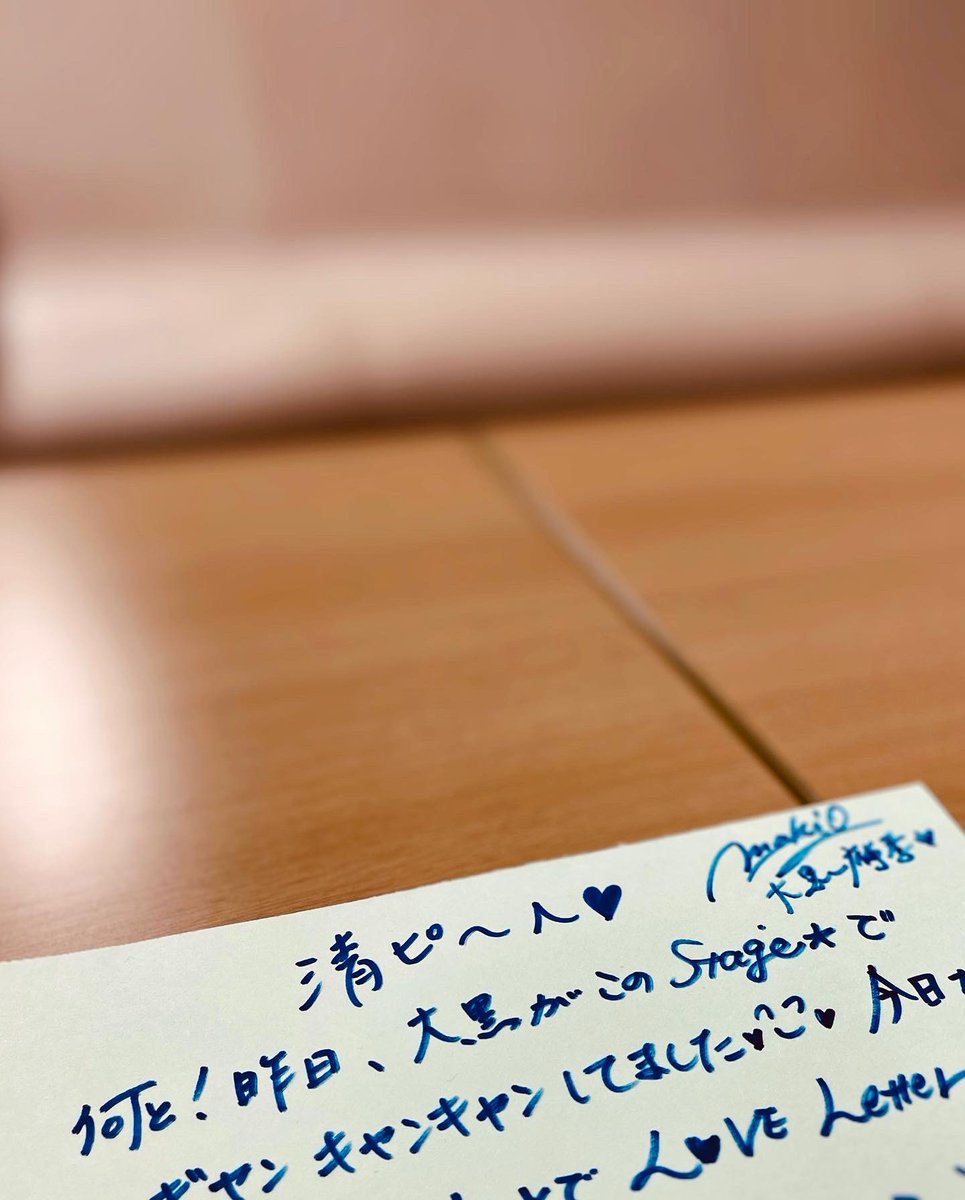 makiO
大黒摩季♥
清ピ〜へ♥
何と！昨日、大黒がこのStage★で
ギャンキャンキャンしてました♥ 今日
とで L♥VE Letter